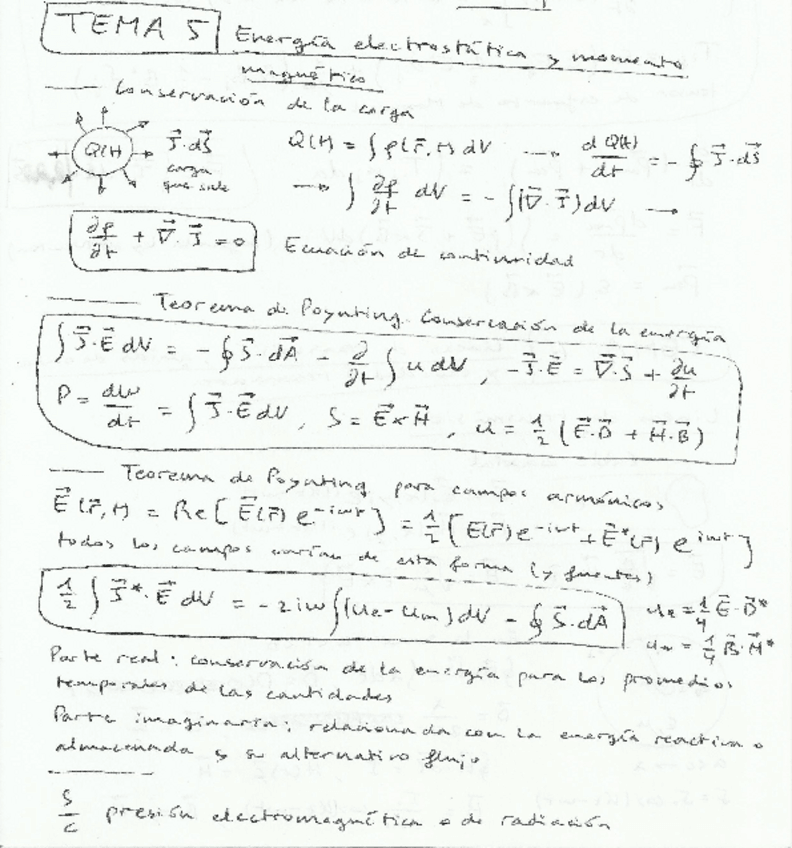 TEMA 5 Energía electrostática y momento
magnético
— Conservación de la carga
Q(t) J⃗·dS⃗ Q(t) = ∫ρ(r⃗,t) dV → dQ(t)/dt = -∮ J⃗·dS⃗
carga
que sale → ∫ ∂ρ/∂t dV = -∫(∇⃗·J⃗)dV →
∂ρ/∂t + ∇⃗·J⃗ = 0 Ecuación de continuidad
— Teorema de Poynting. Conservación de la energía
∫J⃗·E⃗ dV = -∮ S⃗·dA⃗ - ∂/∂t ∫ u dV , -J⃗·E⃗ = ∇⃗·S⃗ + ∂u/∂t
P = dw/dt = ∫ J⃗·E⃗ dV , S = E⃗×H⃗ , u = 1/2 (E⃗·D⃗ + H⃗·B⃗)
— Teorema de Poynting para campos armónicos
E⃗(r⃗,t) = Re[E⃗(r⃗) e^{-iωt}] = 1/2 [E(r⃗) e^{-iωt} + E⃗*(r⃗) e^{iωt}]
todos los campos varían de esta forma (y fuentes)
1/2 ∫ J⃗*·E⃗ dV = -2iω∫(ue - um)dV - ∮ S⃗·dA⃗ ue = 1/4 E⃗·D⃗*
um = 1/4 B⃗·H⃗*
Parte real: conservación de la energía para los promedios
temporales de las cantidades
Parte imaginaria: relacionada con la energía reactiva o
almacenada y su alternativo flujo
S/c presión electromagnética o de radiación